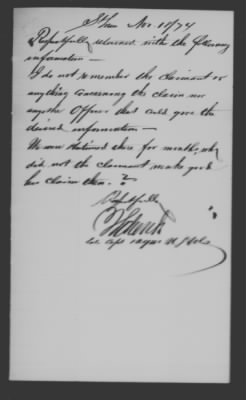 Nov 10/74
Respectfully returned with the following
information —
I do not remember the claimant or
anything concerning the claim nor
any the Officer that could give the
desired information —
We were stationed there for months, why
did not the claimant make good
his claim then. ?
Respectfully
late Capt